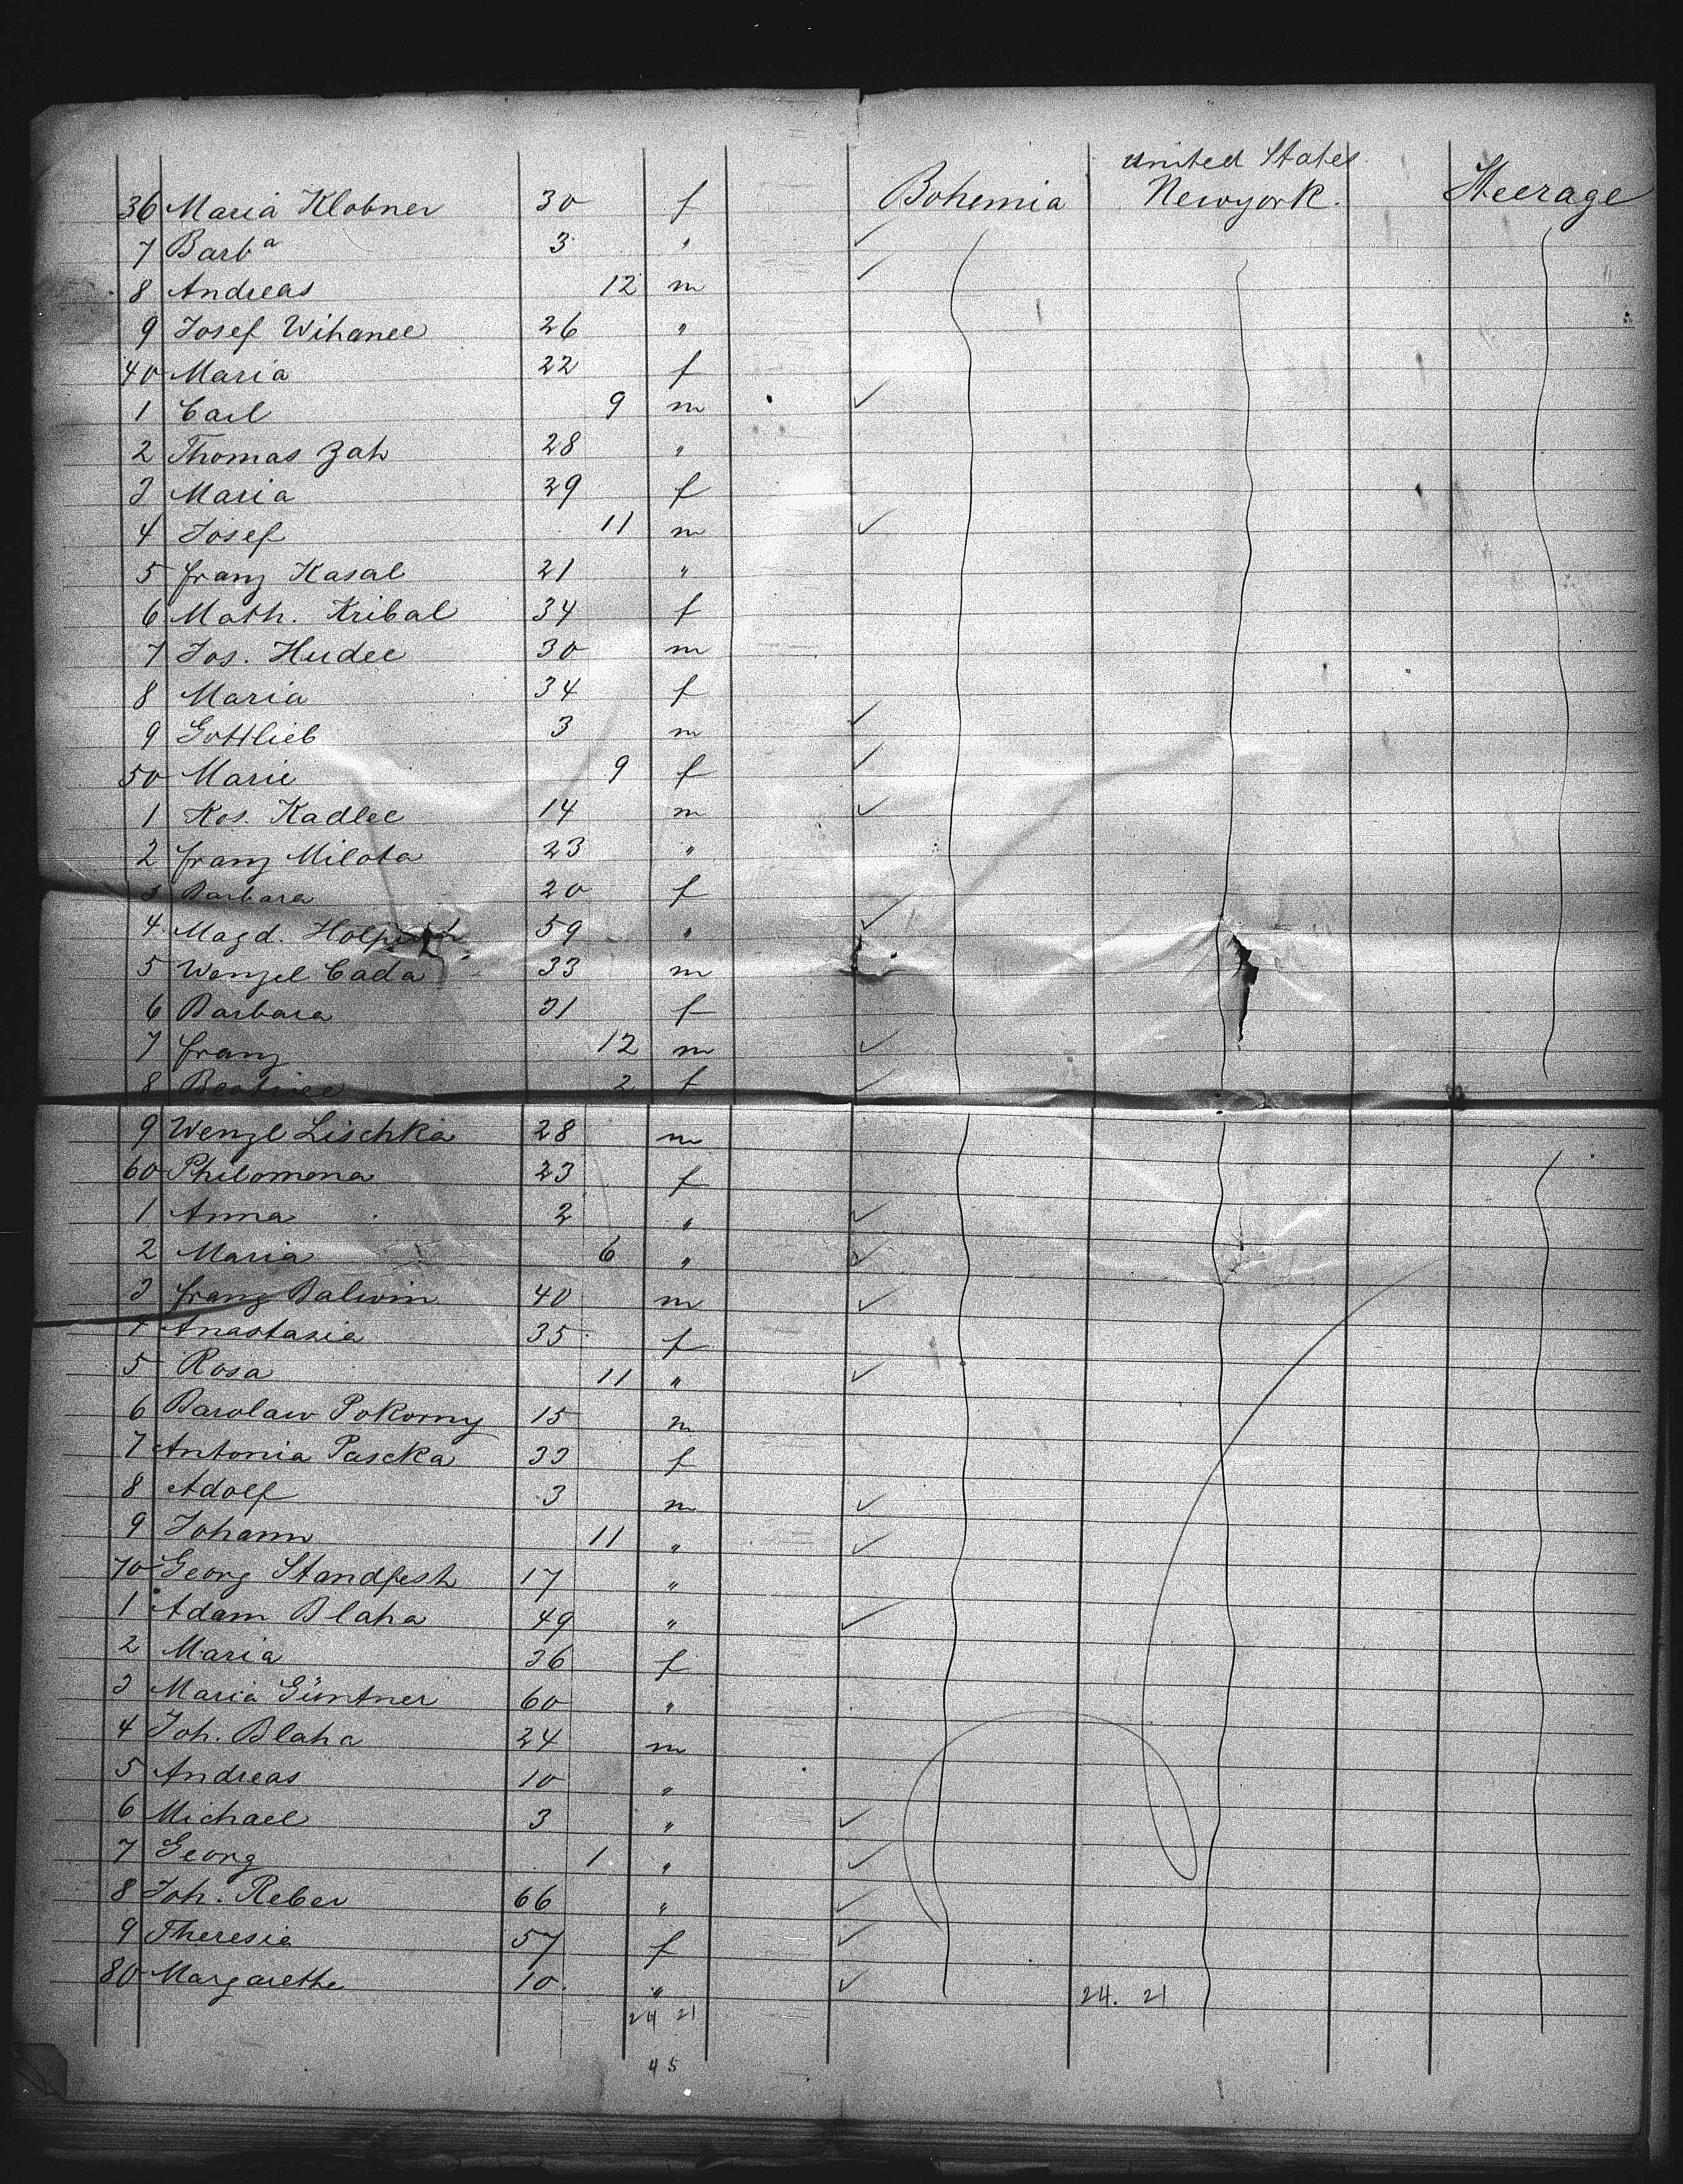 United States
36 Maria Klobner 30 f Bohemia Newyork. Steerage
7 Barbª 3 "
8 Andreas 12 m
9 Josef Wihanec 26 "
40 Maria 22 f
1 Carl 9 m
2 Thomas Zah 28 "
3 Maria 29 f
4 Josef 11 m
5 Franz Kasal 21 "
6 Math. Kribal 34 f
7 Jos. Hudec 30 m
8 Maria 34 f
9 Gottlieb 3 m
50 Marie 9 f
1 Kos. Kadlec 14 m
2 Franz Milota 23 "
3 Barbara 20 f
4 Magd. 59 "
5 Wenzel Cada 33 m
6 Barbara 31 f
7 Franz 12 m
8 2 f
9 Wenzl Lischka 28 m
60 Philomena 23 f
1 Anna 2 "
2 Maria 6 "
3 Franz Balwin 40 m
4 Anastasia 35 f
5 Rosa 11 "
6 Barolaw Pokorny 15 m
7 Antonia Pascka 33 f
8 Adolf 3 m
9 Johann 11 "
70 Georg Standfest 17 "
1 Adam Blaha 49 "
2 Maria 36 f
3 Maria Güntner 60 "
4 Joh. Blaha 24 m
5 Andreas 10 "
6 Michael 3 "
7 Georg 1 "
8 Joh. Reber 66 "
9 Theresia 57 f
80 Margarethe 10 "
24 21 24. 21
45